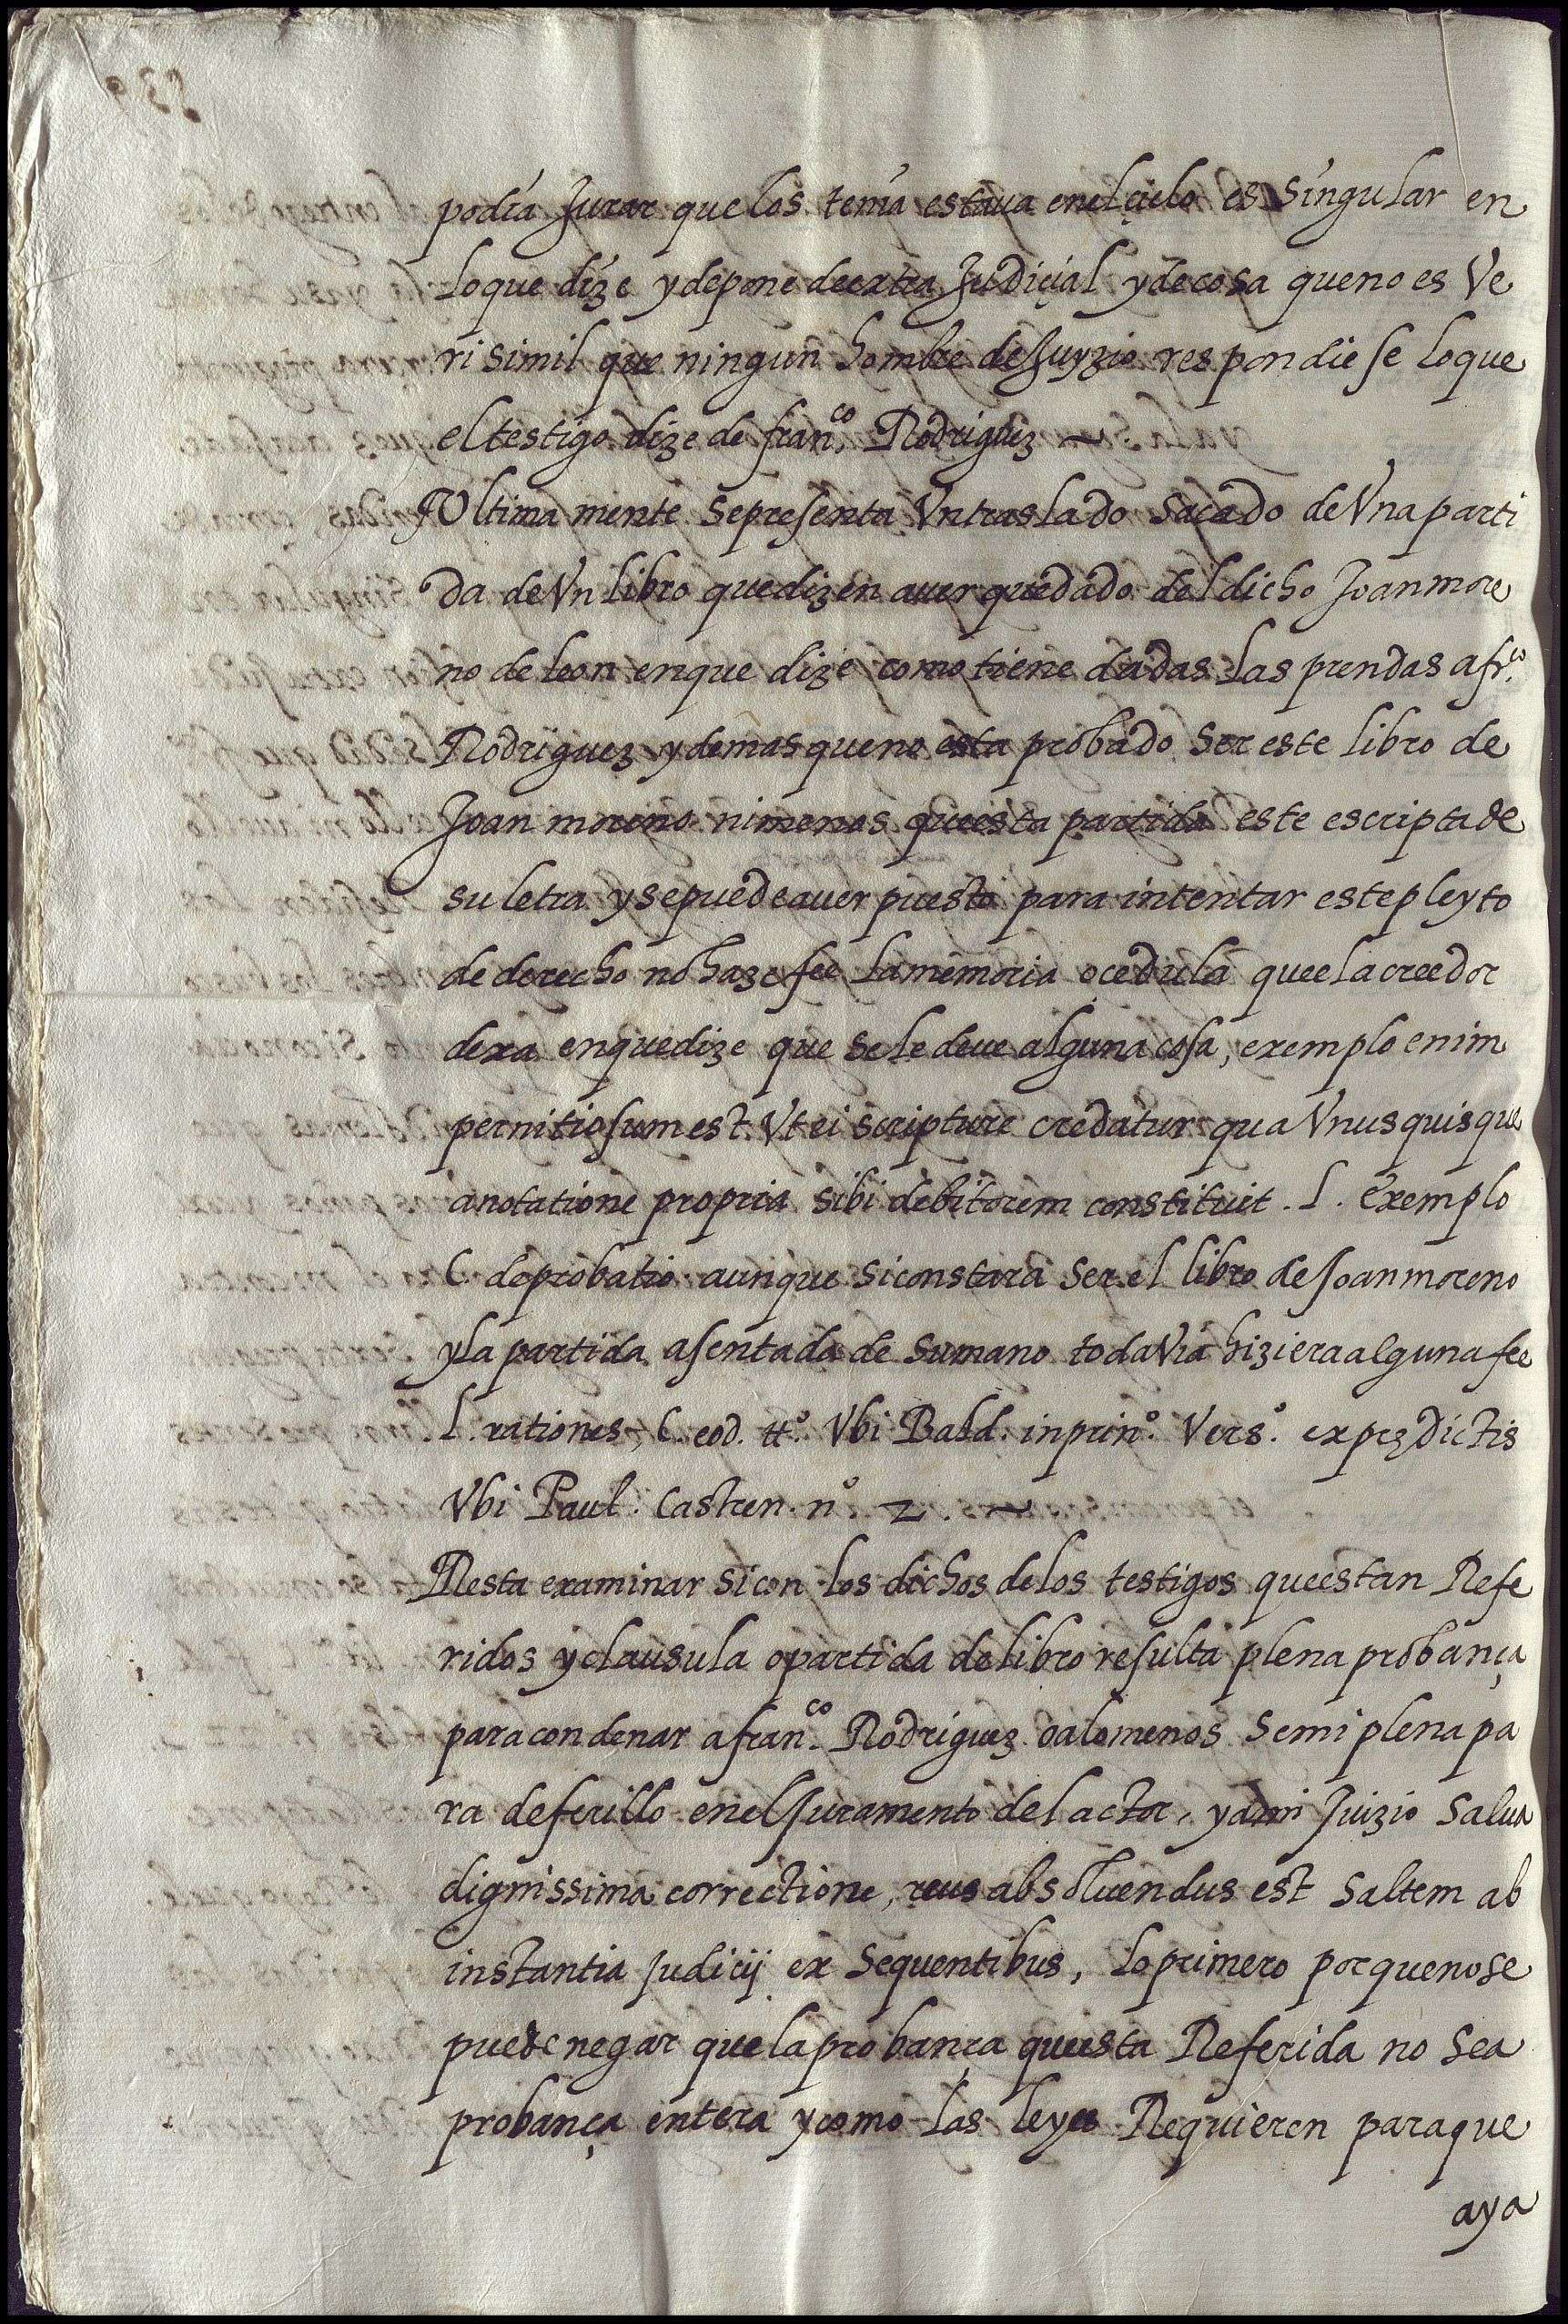 podía Jurar que los tenía estaua enelçielo es singular en
loque dize y depone de extra Judiçial y de cosa que no es Ve
risimil que ningun hombre de Juyzio respondiese loque
el testigo dize de fran.co Rodriguez —
Ultima mente se presenta Vn traslado sacado de Vna parti
da de Vn libro que dizen auer quedado del dicho Joan more
no de leon en que dize como tiene dadas las prendas a fr.co
Rodriguez y demas que no esta probado ser este libro de
Joan moreno ni menos que esta partida este escripta de
su letra y se puede auer puesto para intentar este pleyto
de derecho no haze fee la memoria o cedula que el acreedor
dexa en que dize que se le deue alguna cosa, exemplo enim
pernitiosum est Vt ei scripture credatur qua Vnus quis que
anotatione propria sibi debitorem constituit. l. exemplo
C. de probatio. aunque si constara ser el libro de Joan moreno
y la partida asentada de su mano toda Via hiziera alguna fee
l. rationes, C. eod. tt.º Vbi Bald. in prin.º Vers.º ex prędictis
Vbi Paul. Castren. nº 2. —
Resta examinar si con los dichos de los testigos que estan Refe
ridos y clausula o partida de libro resulta plena probança
para condenar a fran.co Rodriguez o alomenos semi plena pa
ra deferillo en el Juramento del actor, y a mi Juizio salua
dignissima correctione, reus absoluendus est saltem ab
instantia Judicij ex sequentibus, lo primero por que no se
puede negar que la probança que esta Referida no sea
probança entera y como las leyes Requieren para que
aya